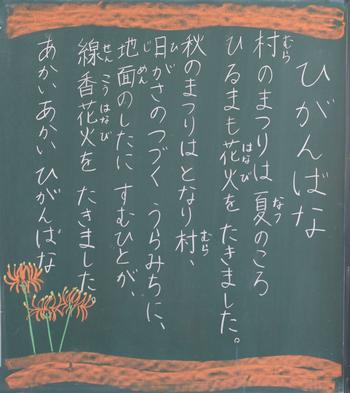 ひがんばな
村のまつりは 夏のころ
ひるまも花火を たきました。
秋のまつりはとなり村、
日がさのつづく うらみちに、
地面のしたに すむひとが、
線香花火を たきました
あかいあかい ひがんばな